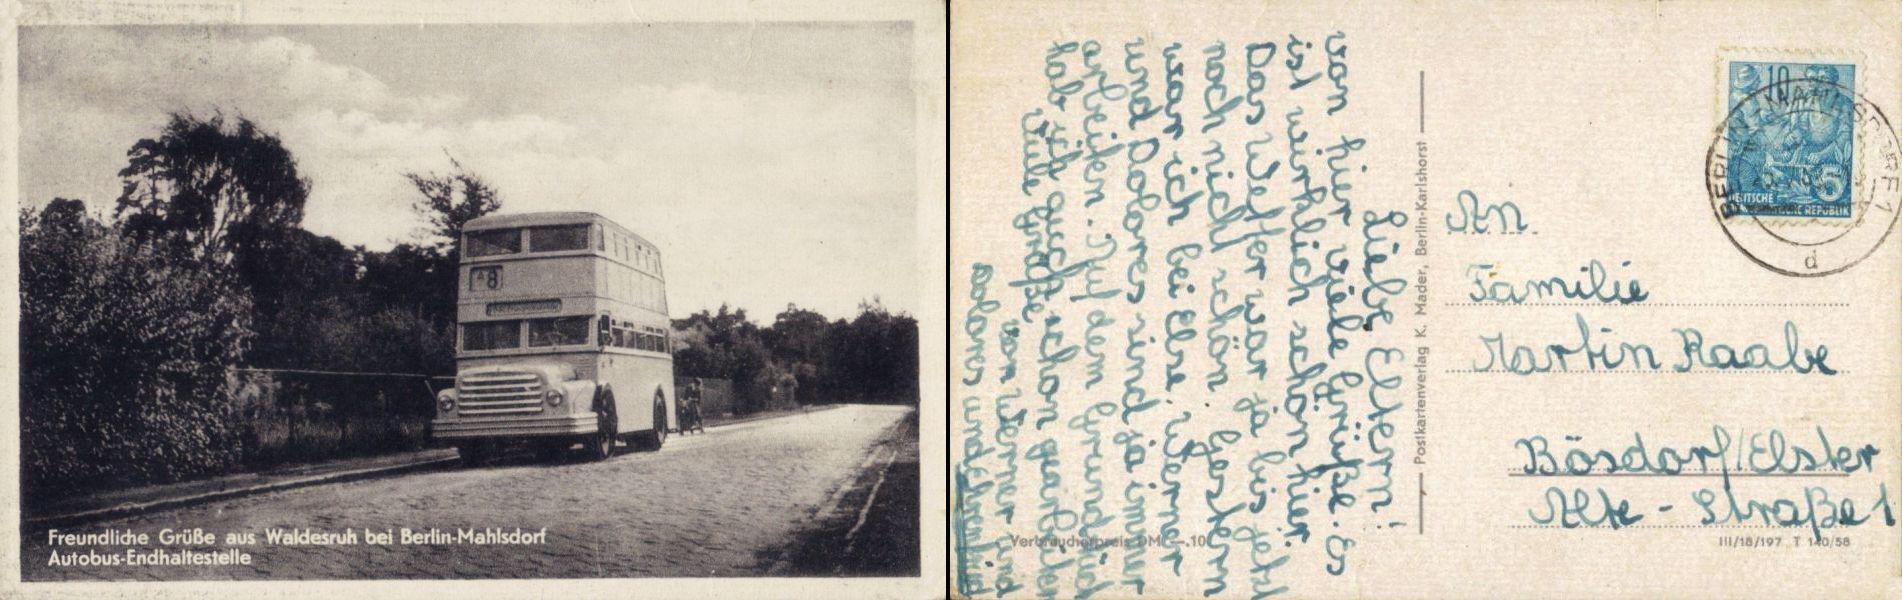 A 8
Freundliche Grüße aus Waldesruh bei Berlin-Mahlsdorf
Autobus-Endhaltestelle
Liebe Eltern!
von hier viele Grüße. Es
ist wirklich schön hier.
Das Wetter war ja bis jetzt
noch nicht schön. Gestern
war ich bei Else. Werner
und Dolores sind ja immer
arbeiten. Auf dem Grundstück
hab ich auch schon gearbeitet
Viele Grüße
von Werner und
Dolores und
Verbraucherpreis DM —.10
Postkartenverlag K. Mader, Berlin-Karlshorst
10
5
DEUTSCHE
DEMOKRATISCHE REPUBLIK
BERLIN-MAHLSDORF 1
d
An
Familie
Martin Raabe
Bösdorf/Elster
Alte-Straße 1
III/18/197 T 140/58